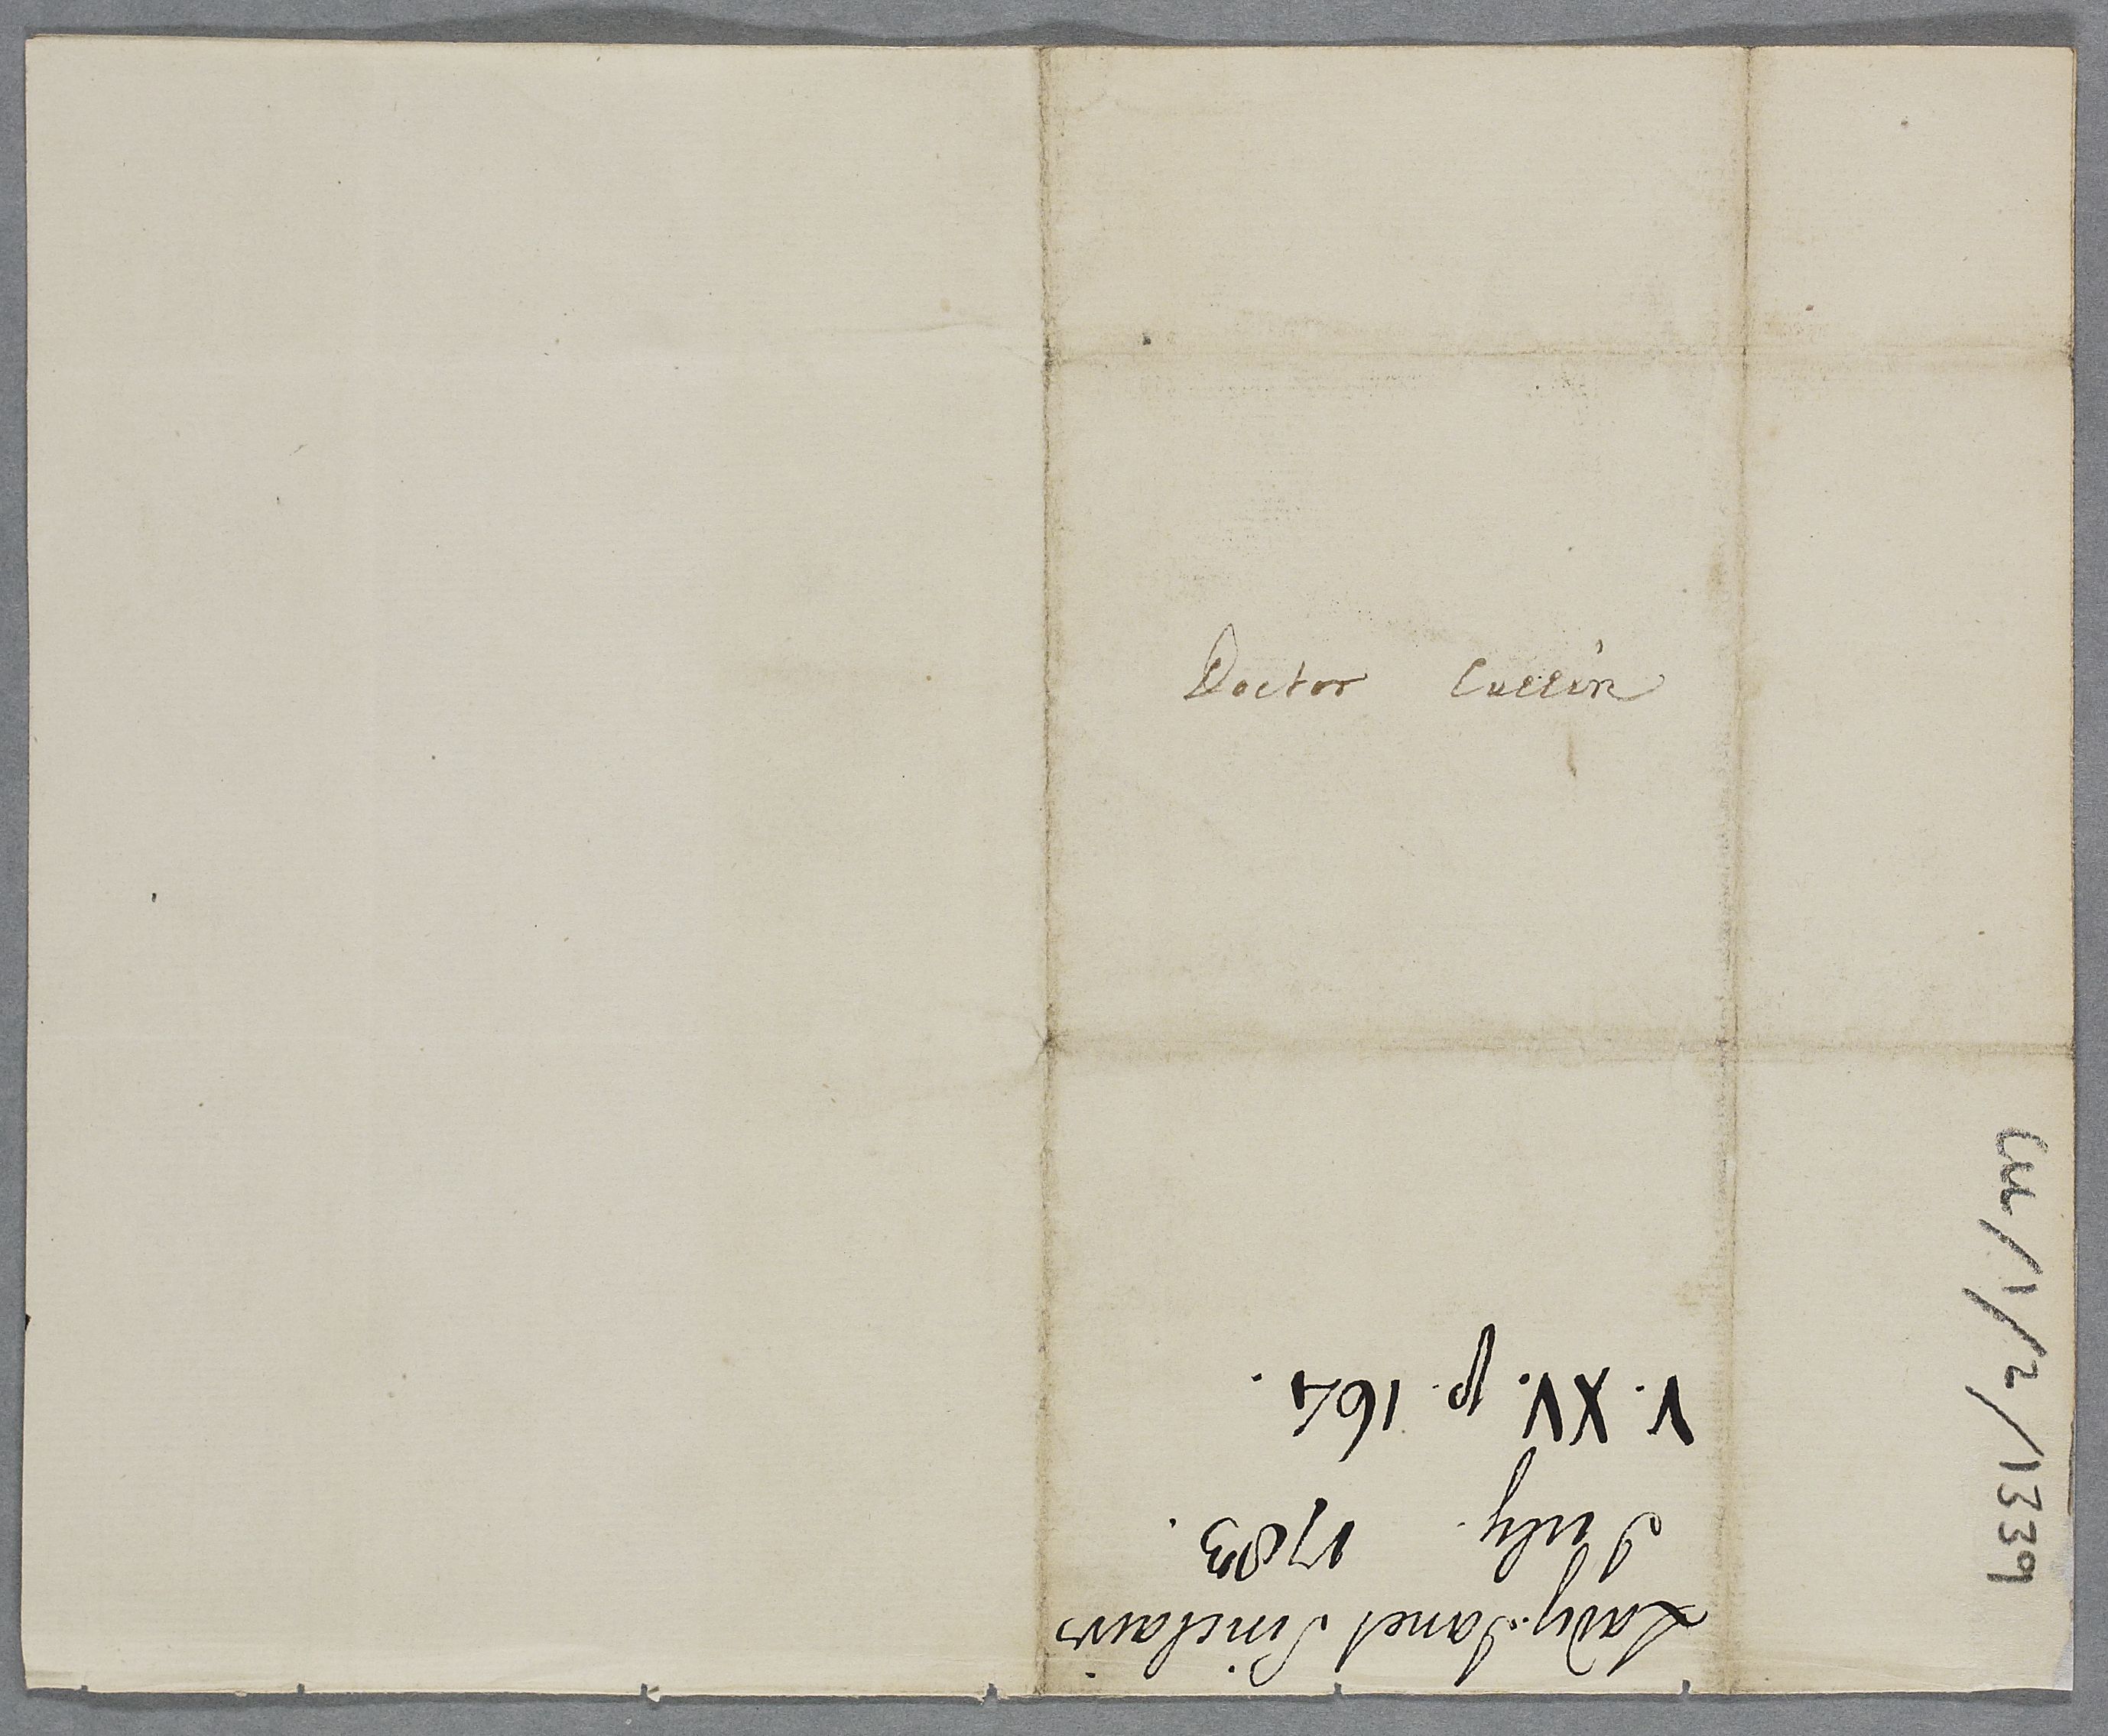 Doctor Cullin
Lady Janet Sinclair
July. 1783.
V. XV. p. 164.
CUL/1/2/1339